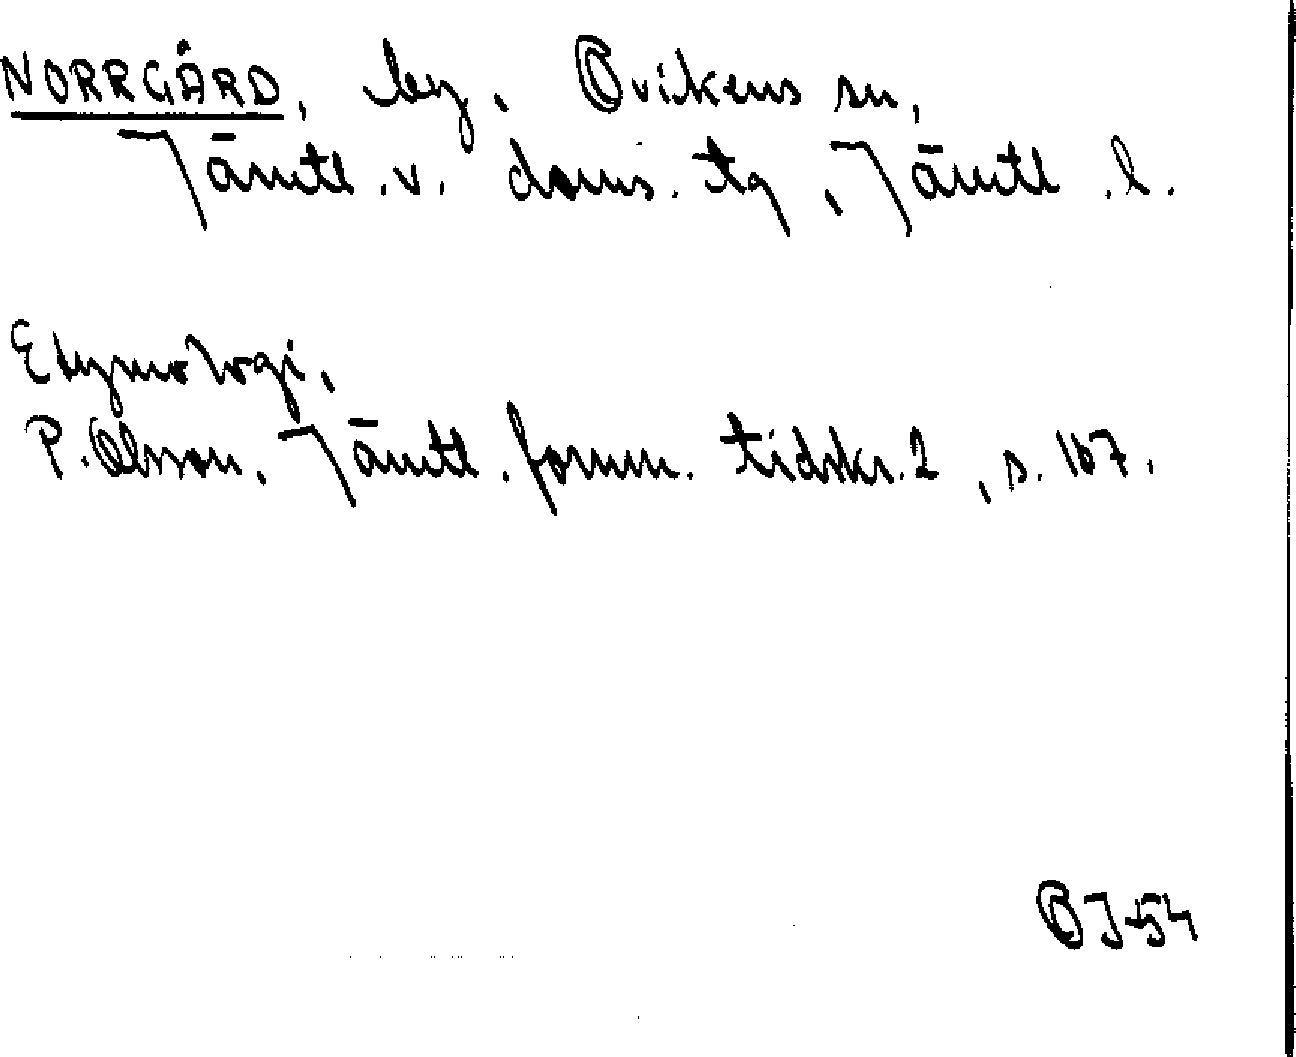 NORRGÅRD, by, Ovikens sn,
Jämtl. v. doms. tg, Jämtl. l.
Etymologi,
P. Olsson, Jämtl. fornm. tidskr. 2, s. 167.
OJ-54